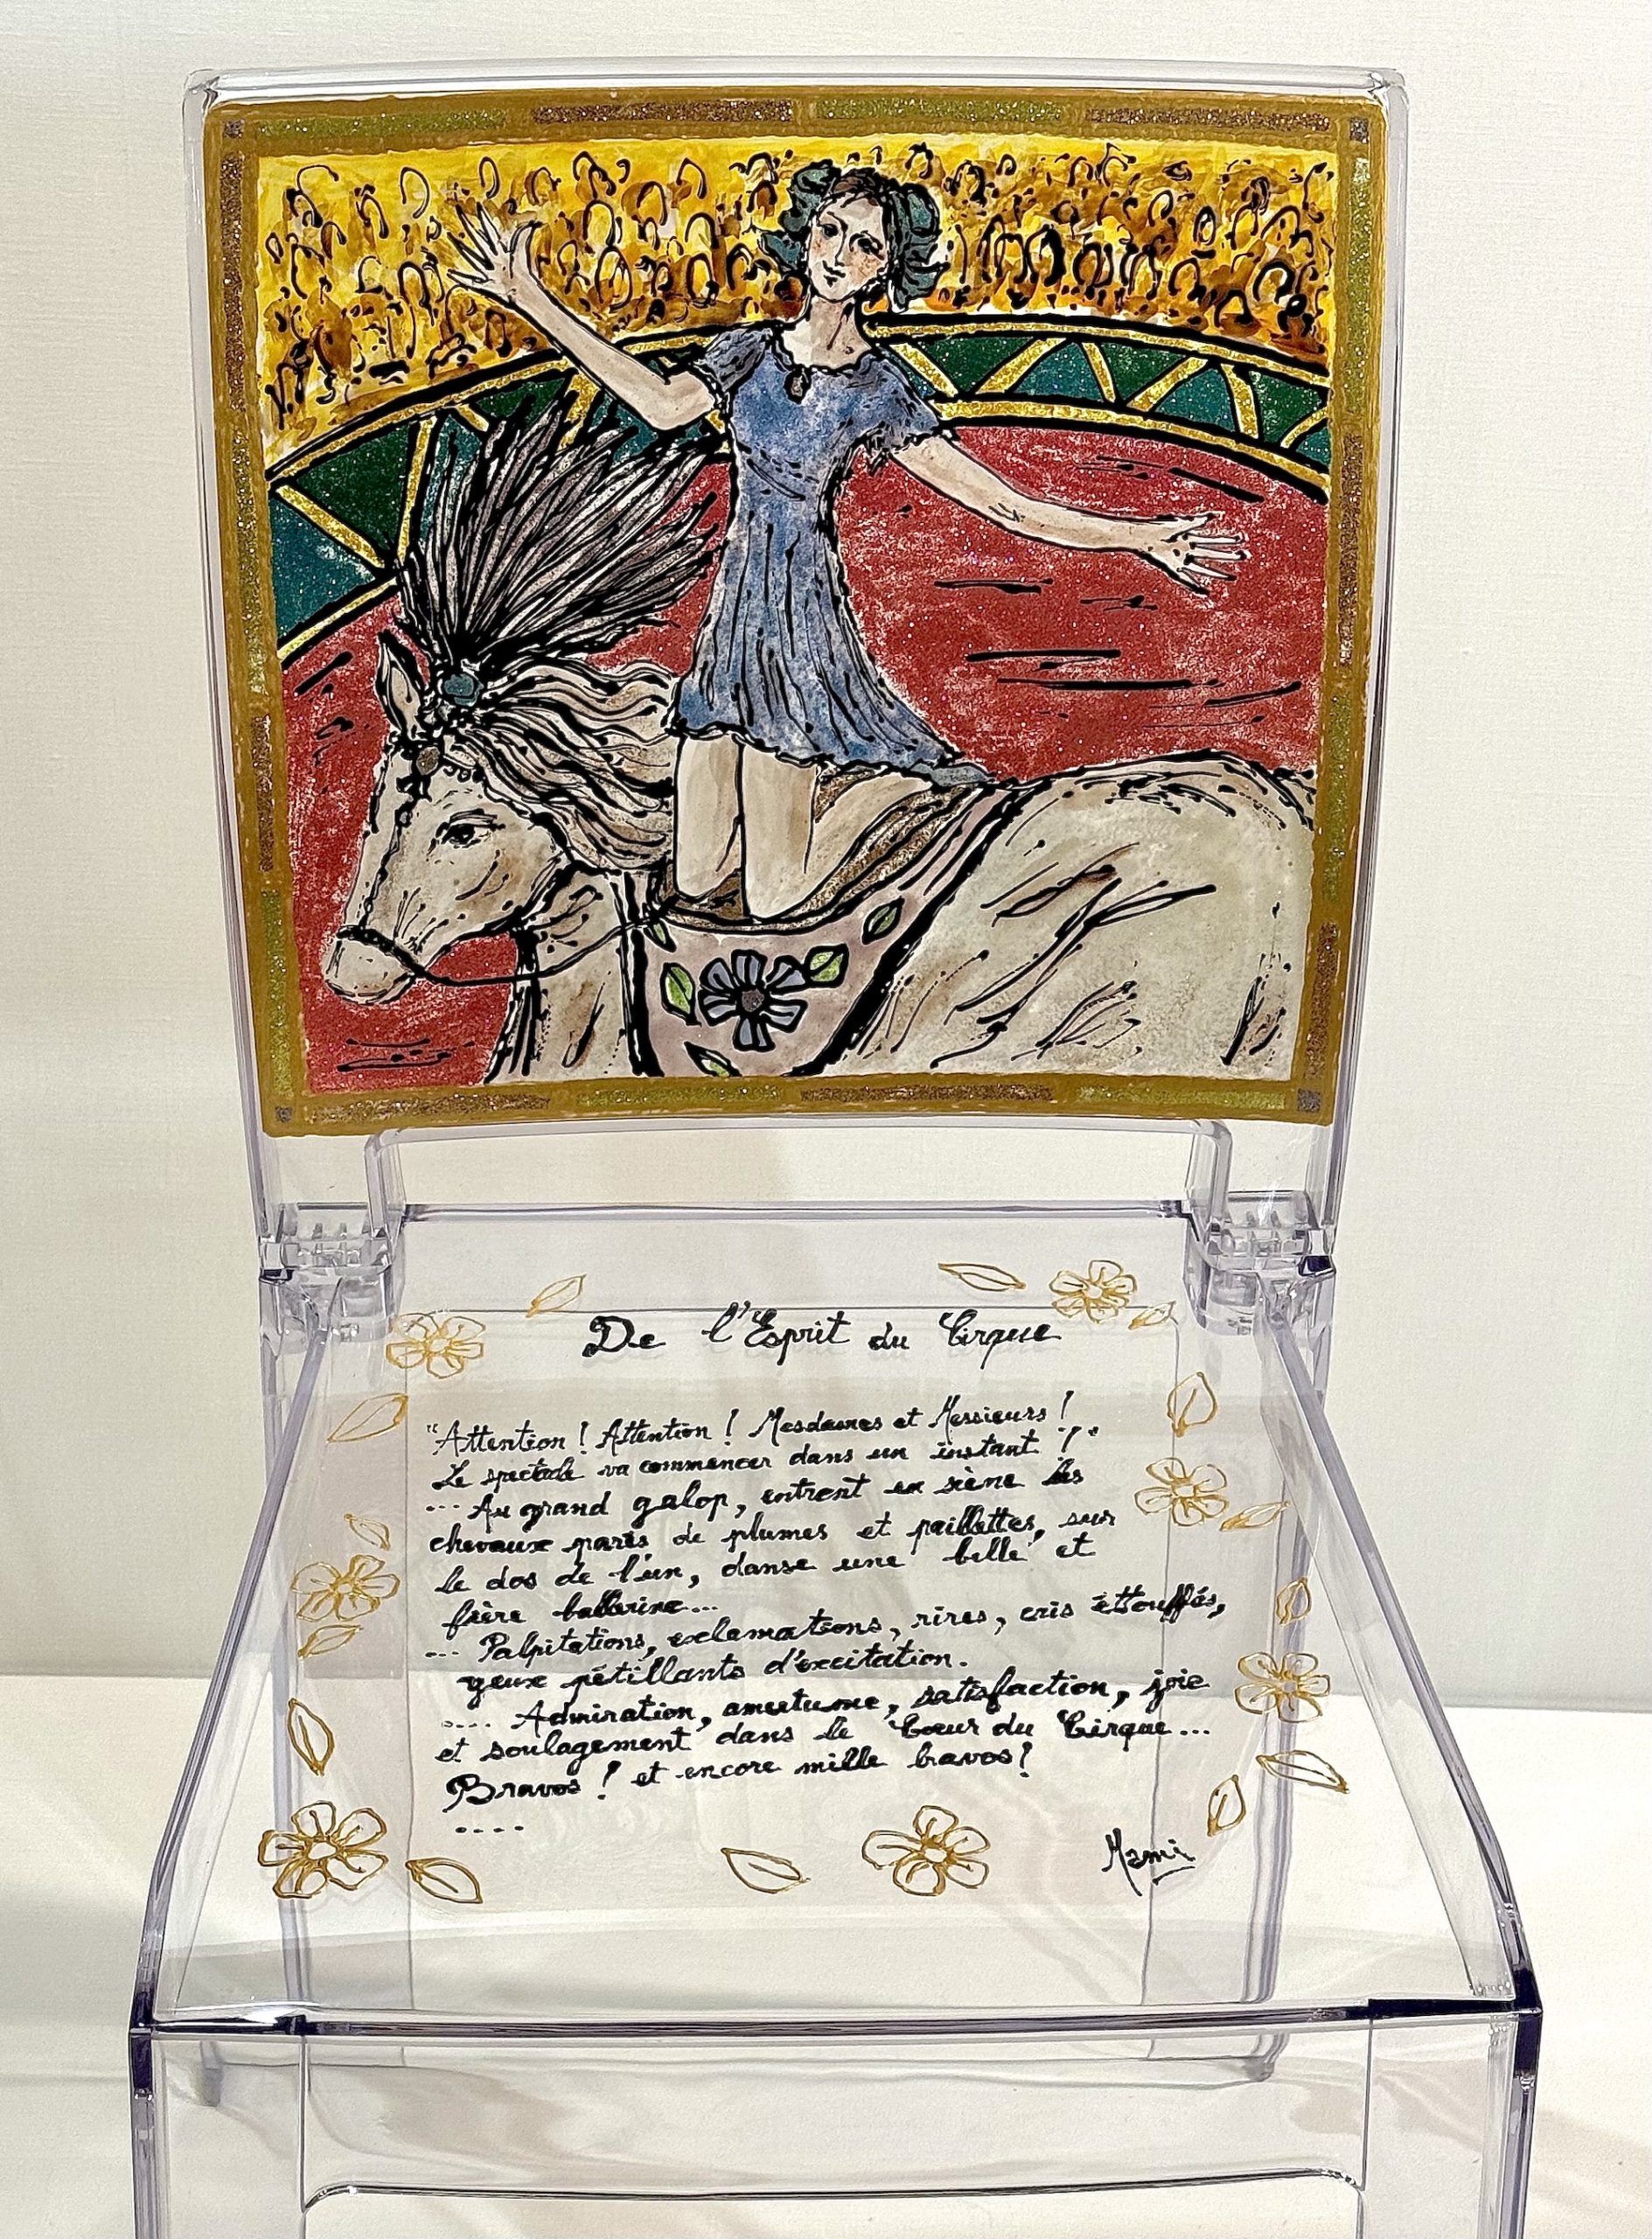 De l'Esprit du Cirque
"Attention ! Attention ! Mesdames et Messieurs !
Le spectacle va commencer dans un instant !"
... Au grand galop, entrent en scène les
chevaux parés de plumes et paillettes, sur
le dos de l'un, danse une belle et
fière ballerine...
... Palpitations, exclamations, rires, cris éttouffés,
yeux pétillants d'excitation.
.... Admiration, amertume, satisfaction, joie
et soulagement dans le Coeur du Cirque...
Bravos ! et encore mille bravos !
....
Mami